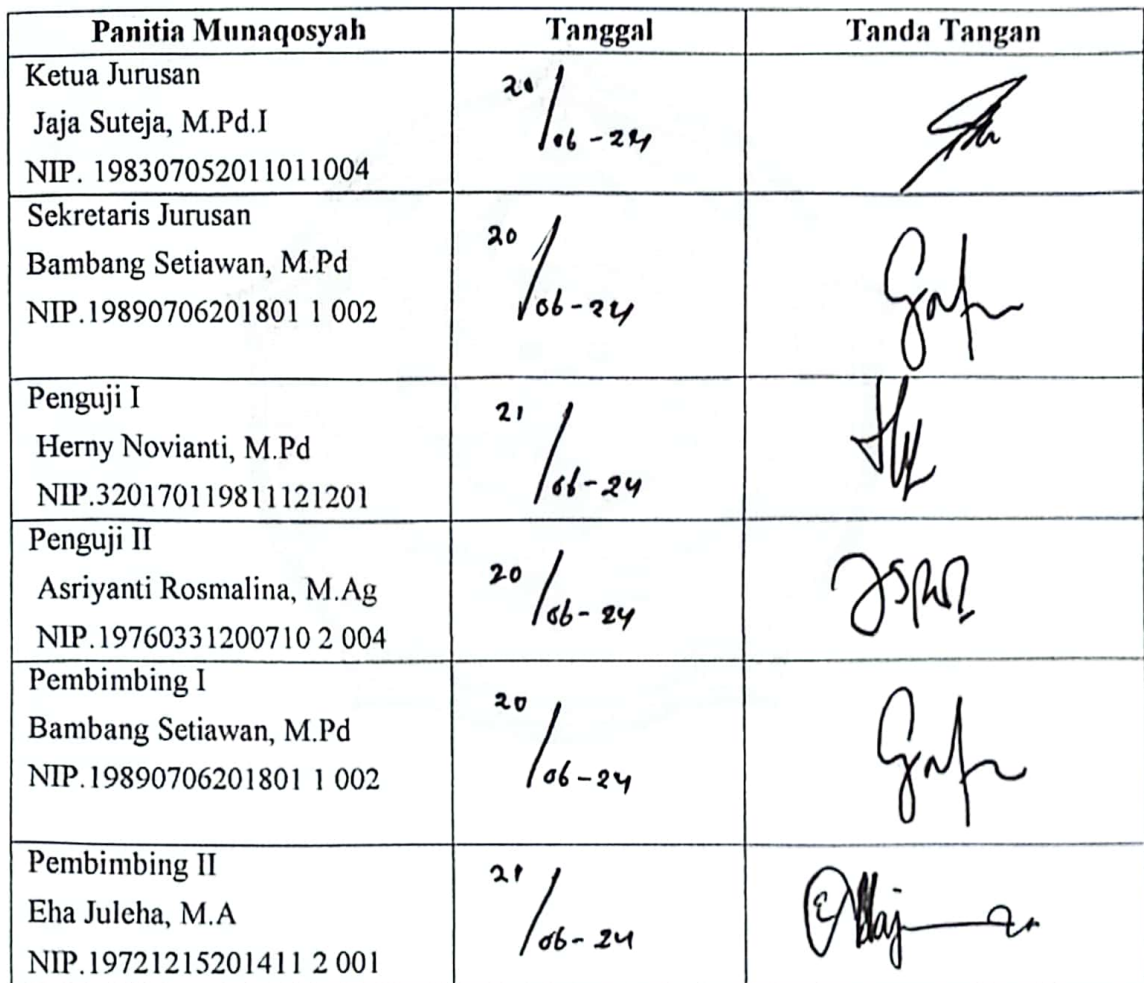 Panitia Munaqosyah Tanggal Tanda Tangan
Ketua Jurusan
Jaja Suteja, M.Pd.I
NIP. 198307052011011004
20/06-24
Sekretaris Jurusan
Bambang Setiawan, M.Pd
NIP.19890706201801 1 002
20/06-24
Penguji I
Herny Novianti, M.Pd
NIP.320170119811121201
21/06-24
Penguji II
Asriyanti Rosmalina, M.Ag
NIP.19760331200710 2 004
20/06-24
Pembimbing I
Bambang Setiawan, M.Pd
NIP.19890706201801 1 002
20/06-24
Pembimbing II
Eha Juleha, M.A
NIP.19721215201411 2 001
21/06-24